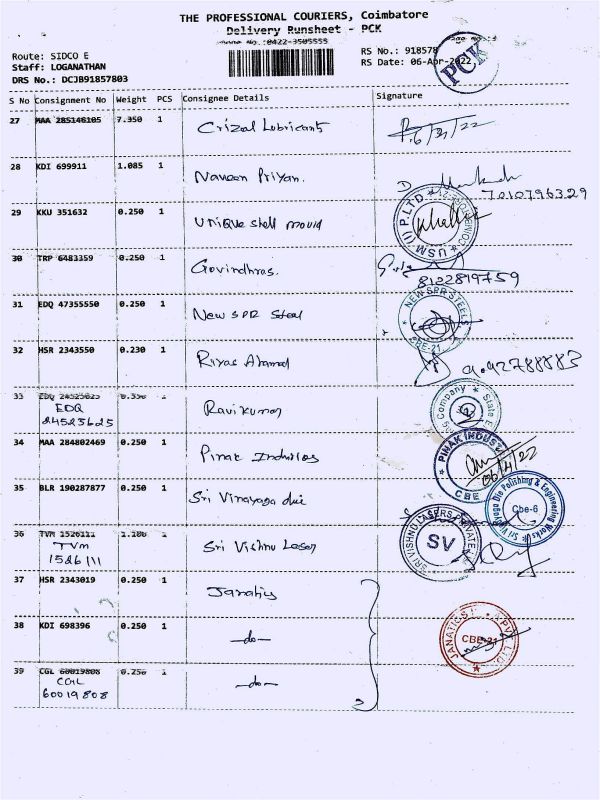 THE PROFESSIONAL COURIERS, Coimbatore
Delivery Runsheet - PCK
Phone No.:0422-3505555
Route: SIDCO E
Staff: LOGANATHAN
DRS No.: DCJB91857803
RS No.: 918578
RS Date: 06-Apr-2022
PCK
S No Consignment No Weight PCS Consignee Details Signature
27 MAA 285146105 7.350 1 Crizal Lubricant
28 KDI 699911 1.085 1 Naveen Priyan.
7010796329
29 KKU 351632 0.250 1 Unique shell mould
USM (I) P.LTD
30 TRP 6483359 0.250 1 Govindhras.
8122819759
31 EDQ 47355550 0.250 1 New SPR Steel
NEW SPR STEELS
CBE-21
32 HSR 2343550 0.230 1 Riyas Ahamed
33 EDQ 24525625 0.350 1 Ravikumar
EDQ
24525625
34 MAA 284802469 0.250 1 Pinak Industries
PINAK INDUST
CBE
06/4/22
35 BLR 190287877 0.250 1 Sri Vinayaga die
Sri Vinayaga Die Polishing & Engineering Works
Cbe-6
36 TVM 1526111 1.180 1 Sri Vishnu Laser
TVM
1526111
SRI VISHNU LASERS PRIVATE
SV
37 HSR 2343019 0.250 1 Janatics
38 KDI 698396 0.250 1 -do-
JANATICS PVT. LTD.
CBE-21
39 CGL 60019808 0.250 1 -do-
CGL
60019808